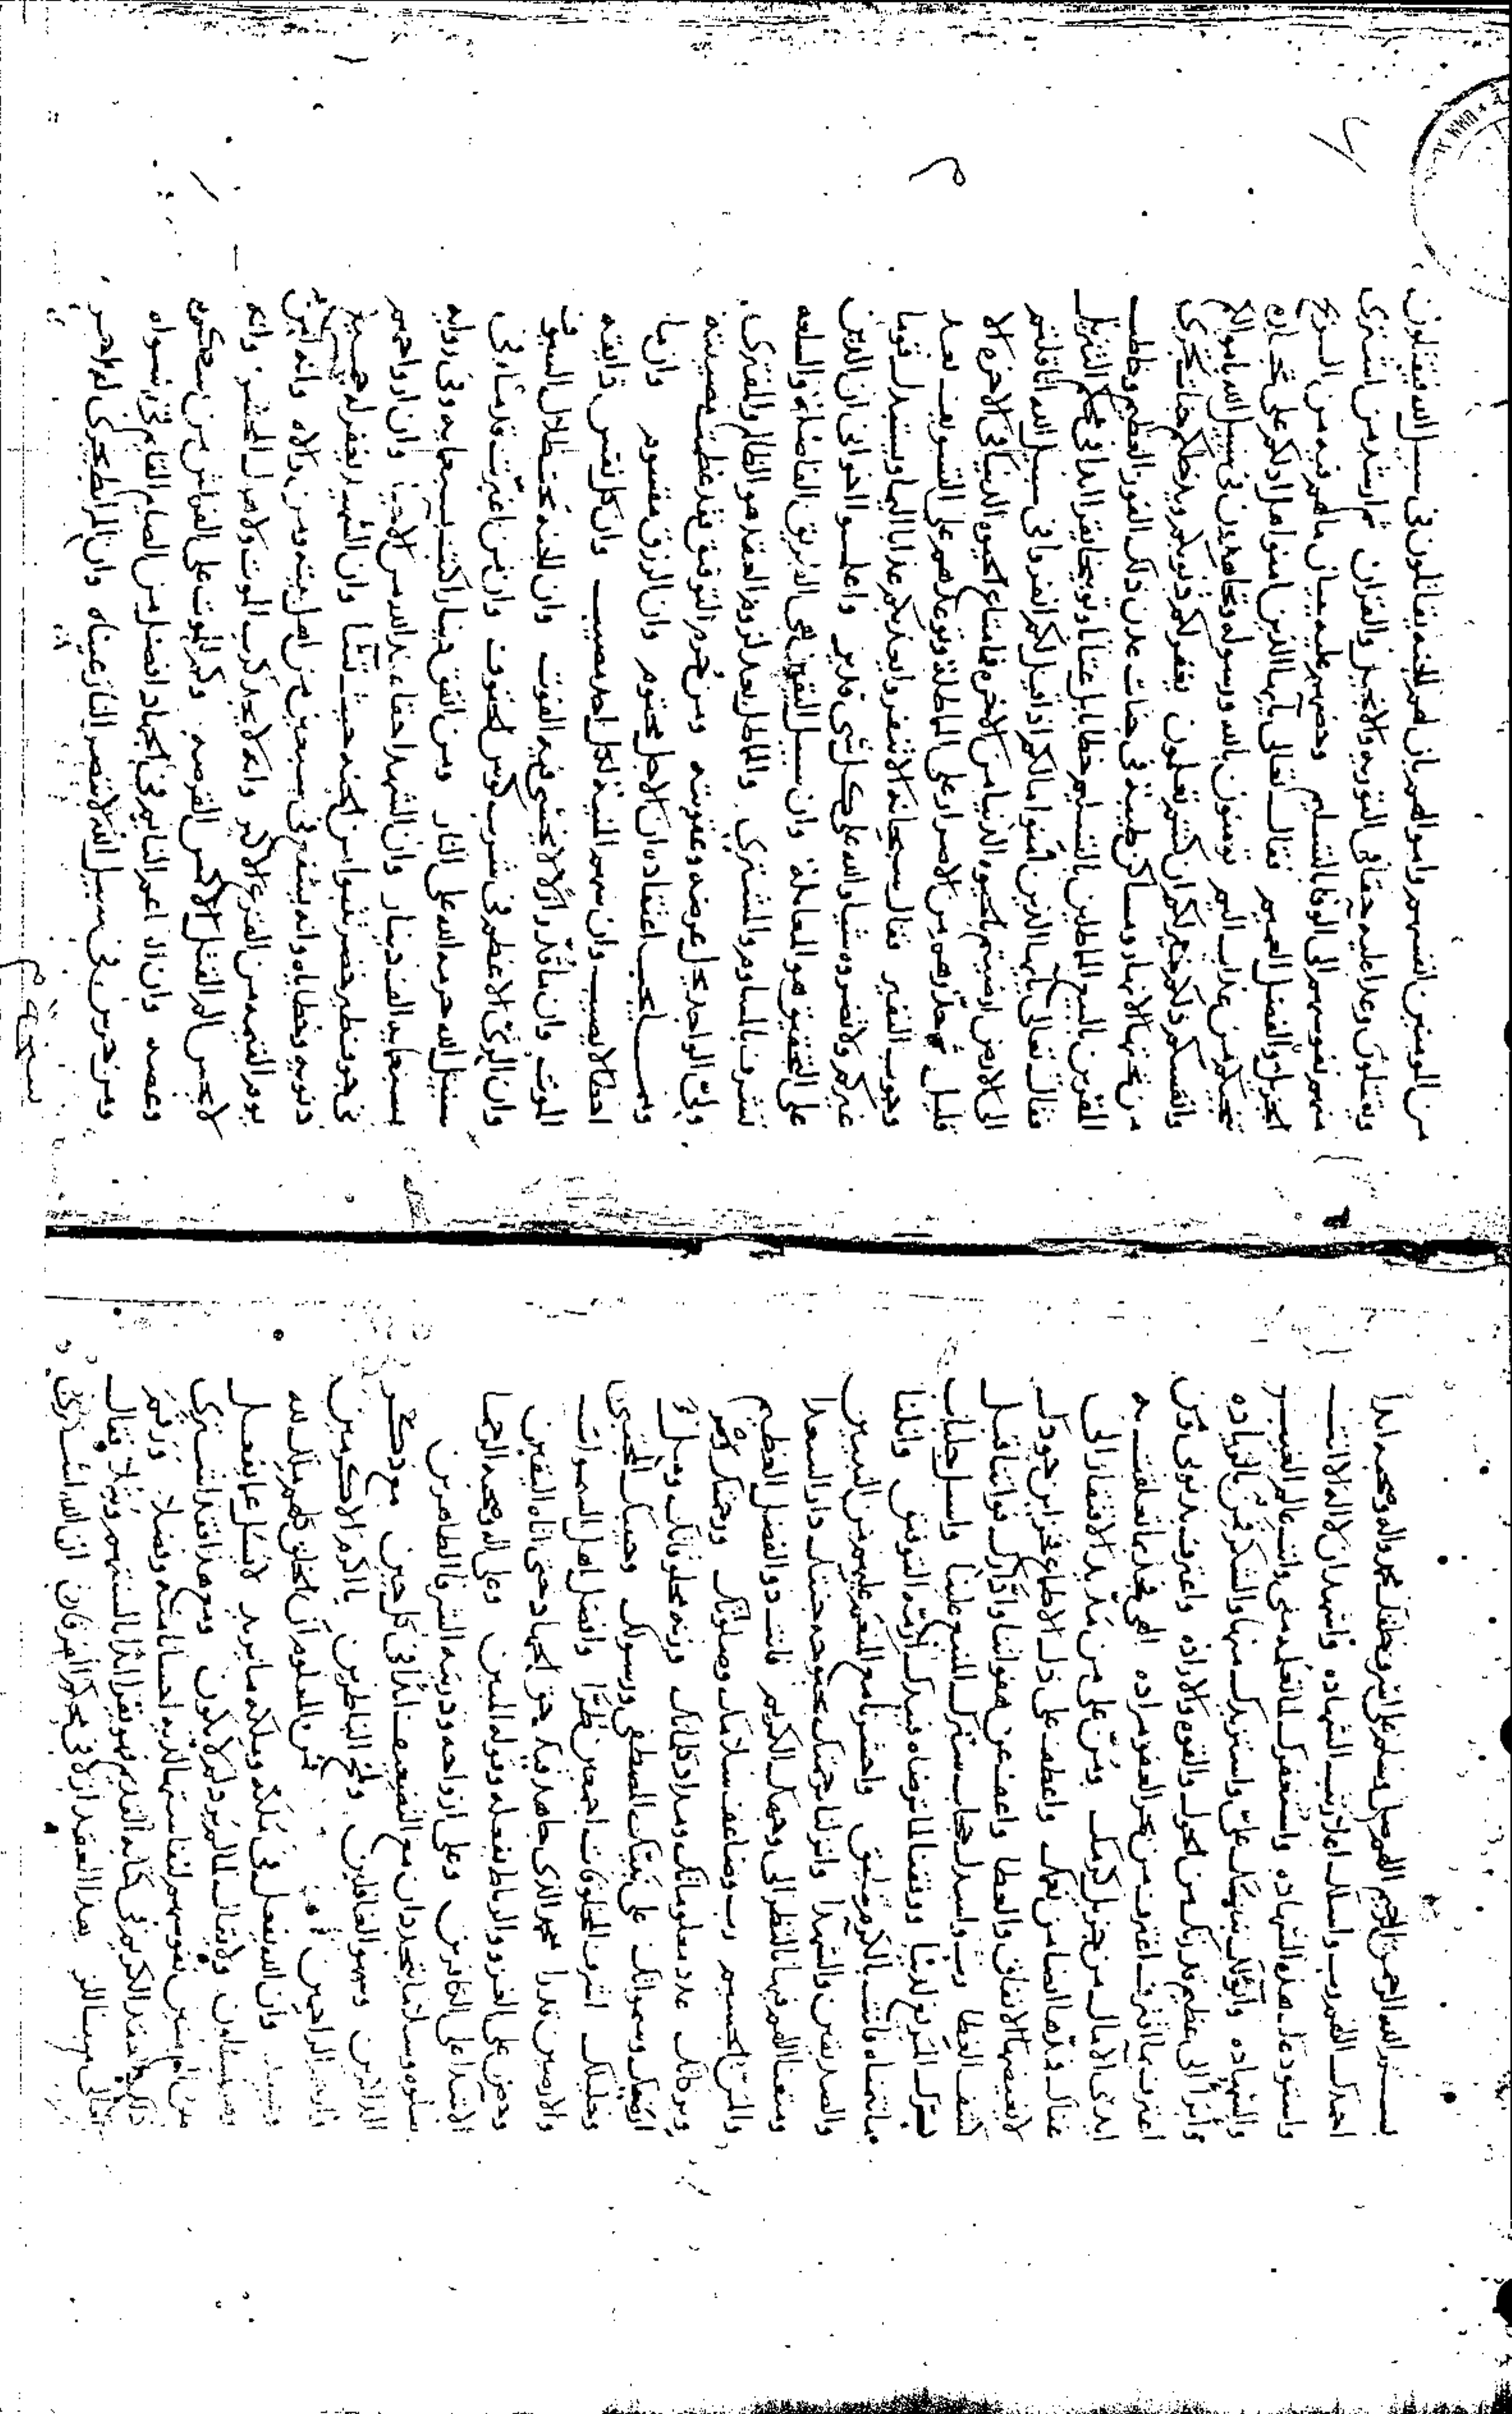 بسم الله الرحمن الرحيم اللهم صل وسلم على اشرف خلقك محمد واله وصحبه ابدا
احمدك اللهم رب واسالك اعلا رتب الشهاده واشهد ان لا اله الا انت
واستودعك هذه الشهاده واستغفرك لما تعلمه مني وانت عالم الغيب
والشهاده وابوء لك بنعمتك علي واستزيدك منها والشكر قمين بالزياده
وابرأ الى عظيم قدرتك من الحول والقوه والاراده واعترف بذنوبي ومن
اعترف بما اقترف اغترف من بحر العفو مراده الهي فجد بما تعلقت به
ايدي الآمال من جزيل كرمك ومن على من مد يد الافتقار الى
غناك من نعمك واعطف على ذل الاطماع فخزاين جودك
لا يغيضها الانفاق والعطا واعف عن هفواتنا فواتنا قبل
كشف الغطا رب واسبل حجاب سترك المنيع علينا واسبل جلباب
برك لدينا ووفقنا لما ترضاه فبيدك ازمه التوفيق وانلنا
ما نتمناه فانت بالكرم حقيق واحشرنا مع المنعم عليهم من النبيين
والصديقين والشهدا وانزلنا برحمتك بحبوحه جنتك دار السعدا
ومتعنا اللهم فيها بالنظر الى وجهك الكريم فانت ذو الفضل العظيم
والمن الجسيم رب وضاعف سلامك وصلواتك ورحمتك
وبركاتك عدد معلوماتك ومداد كلماتك وزنة مخلوقاتك وملء
ارضيك وسمواتك على نبيك المصطفى ورسولك وحبيبك المجتبى
وخليلك اشرف المخلوقات اجمعين طرا وافضل اهل السموات
والارضين قدرا محمد الذي جاهد فيك حق الجهاد حتى اتاه اليقين
وحرض على الغزو والرباط بفعله وقوله المبين وعلى اله وصحبه الرحما
الاشدا على الكافرين وعلى ازواجه وذريته الشرفا الطاهرين
صلوه وسلاما يتجددان مع التضعيف ابدا في كل حين مع ذكر
الذاكرين وسهو الغافلين ولمح الناظرين يا اكرم الاكرمين
وارحم الراحمين فمن المعلوم ان الخلق كلهم ملك لله
وعبيد وان الله يفعل في ملكه وملكه ما يريد لا يسئل عما يفعل
وهم يسئلون ولا يقال لما لم يرد لم لا يكون ومع هذا فقد اشترى
من المومنين نفوسهم لنفاستها لديه احسانا منه وفضلا ورقم
ذلك العقد الكريم في كتابه القديم فهو يقرا ابدا بالسنتهم ويتلا فقال
تعالى بهذا العقد ازلا في محكم الفرقان ان الله اشترى
من المومنين انفسهم واموالهم بان لهم الجنه يقاتلون في سبيل الله فيقتلون
ويقتلون وعدا عليه حقا في التوريه والانجيل والقران ثم ارشد من اشترى
منهم نفوسهم الى الوفا بالتسليم وحضهم عليه ببيان ما لهم فيه من الربح
الجزيل والفضل العميم فقال تعالى يايها الذين امنوا هل ادلكم على تجاره
تنجيكم من عذاب اليم تومنون بالله ورسوله وتجاهدون في سبيل الله باموالكم
وانفسكم ذلكم خير لكم ان كنتم تعلمون يغفر لكم ذنوبكم ويدخلكم جنات تجري
من تحتها الانهار ومساكن طيبة في جنات عدن ذلك الفوز العظيم وخاطب
المقرين بالبيع الماطلين بالتسليم خطابا بل عتابا وتوبيخا يقرا ابدا في محكم التنزيل
فقال تعالى يايها الذين آمنوا ما لكم اذا قيل لكم انفروا في سبيل الله اثاقلتم
الى الارض ارضيتم بالحيوه الدنيا من الاخره فما متاع الحيوه الدنيا في الاخره الا
قليل ثم حذرهم من الاصرار على المماطلة وتوعدهم على التسويف بعد
وجوب النفير فقال سبحانه الا تنفروا يعذبكم عذابا اليما ويستبدل قوما
غيركم ولا تضروه شيا والله على كل شي قدير واعلموا اخواني ان الدين
على التحقيق هو المعاملة وان سبيل اليقين هي الطريق الفاضلة والسلعه
تشرف بالمساوم والمشتري والماطل بعد لزوم العقد هو الظالم والمفترى
ولي الواجد يحل عرضه وعقوبته ومن حرم التوفيق فقد عظمت مصيبته
ومما يجب اعتقاده ان الاجل محتوم وان الرزق مقسوم وان ما
اخطا لا يصيب وان سهم المنية لكل احد مصيب وان كل نفس ذايقه
الموت وان ما قدر ازلا لا يخشى فيه الفوت وان الجنه تحت ظلال السيوف
وان الري الاعظم في شرب كوس الحتوف وان من اغبرت قدماه في
سبيل الله حرمه الله على النار ومن انفق دينارا كتب بسبعمايه وفي روايه
بسبعمايه الف دينار وان الشهدا حقا عند الله من الاحيا وان ارواحهم
في جوف طير خضر تتبوا من الجنه حيث تشا وان الشهيد يغفر له جميع
ذنوبه وخطاياه وانه يشفع في سبعين من اهل بيته ومن والاه وانه امن
يوم القيمه من الفزع الاكبر وانه لا يجد كرب الموت ولا هول المحشر وانه
لا يحس الم القتل الا كمس القرصه وكم للموت على الفراش من سكره
وغصه وان الطاعم النايم في الجهاد افضل من الصايم القايم في سواه
ومن حرس في سبيل الله لا تبصر النار عيناه وان المرابط يجري له اجر